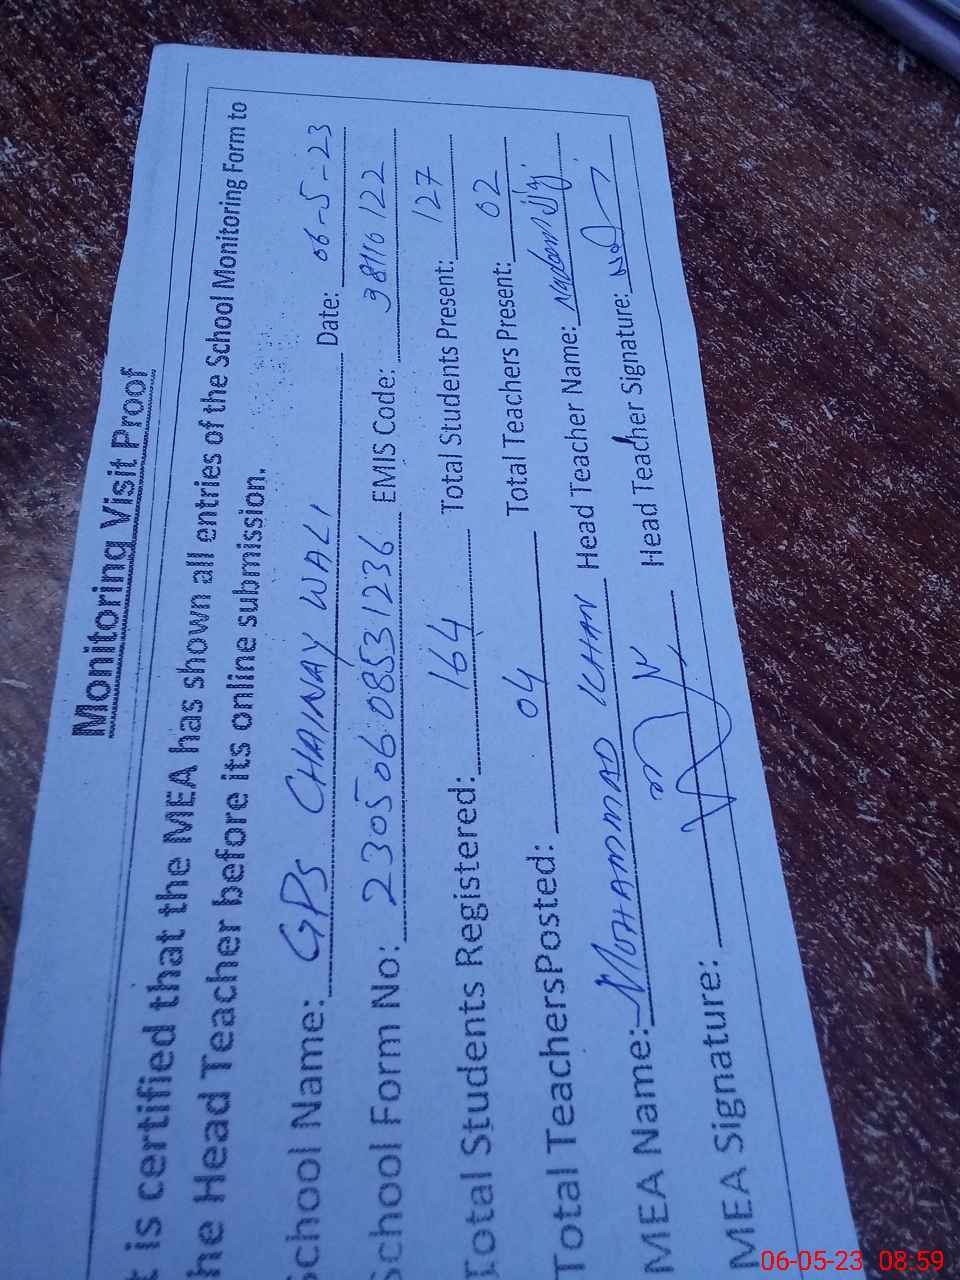 Monitoring Visit Proof
t is certified that the MEA has shown all entries of the School Monitoring Form to
he Head Teacher before its online submission.
School Name: GPS CHAINAY WALI Date: 06-5-23
School Form No: 230506 0853 1236 EMIS Code: 38110122
Total Students Registered: 164 Total Students Present: 127
Total TeachersPosted: 04 Total Teachers Present: 02
MEA Name: MOHAMMAD KHAN Head Teacher Name:
MEA Signature: Head Teacher Signature:
06-05-23 08:59